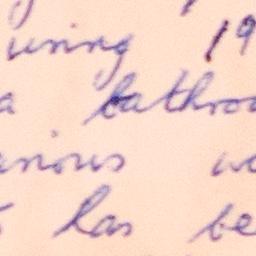 uring 19
a bathroo
arious wo
has be